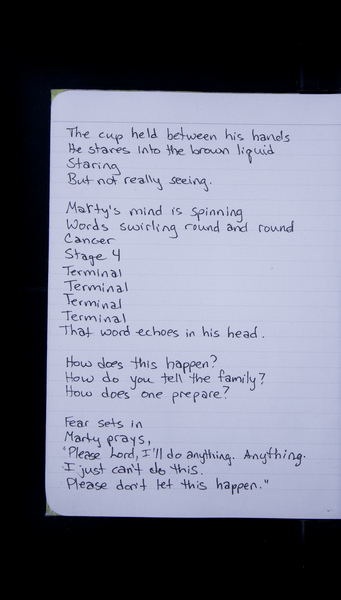 The cup held between his hands
He stares into the brown liquid
Staring
But not really seeing.
Marty's mind is spinning
Words swirling round and round
Cancer
Stage 4
Terminal
Terminal
Terminal
Terminal
That word echoes in his head.
How does this happen?
How do you tell the family?
How does one prepare?
Fear sets in
Marty prays,
"Please Lord, I'll do anything. Anything.
I just can't do this.
Please don't let this happen."